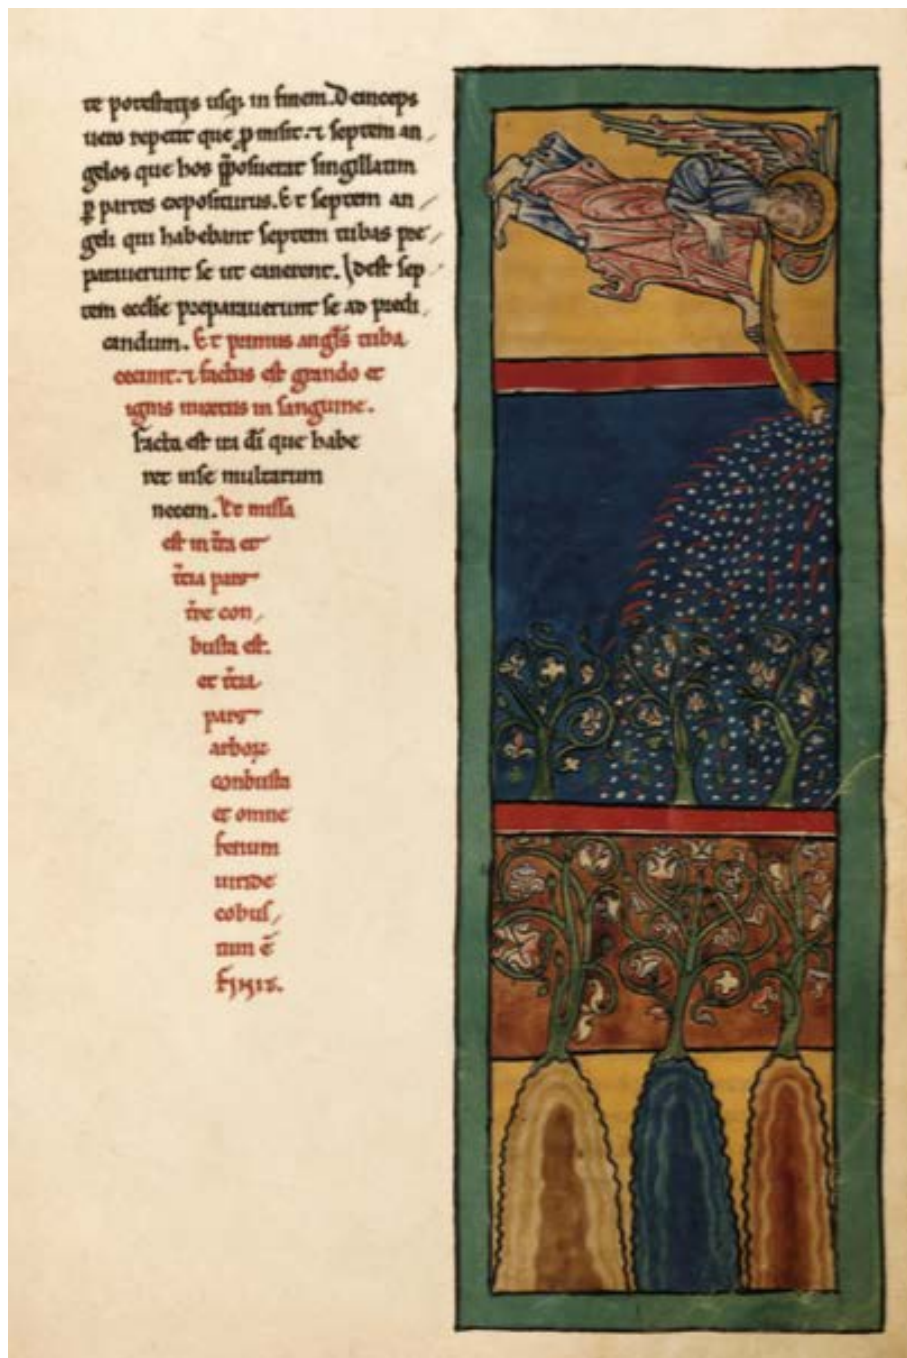 te potestatis usq; in finem. Deinceps
uero repetit que p̱misit. ⁊ septem an
gelos que hos p̱posuerat singillatim
ꝑ partes expositurus. Et septem an
geli qui habebant septem tubas pre
parauerunt se ut canerent. Idest sep
tem eccl̄ie preparauerunt se ad predi
candum. Et primus angl̄s tuba
cecinit. ⁊ factus est grando et
ignis mixtus in sanguine.
facta est ira d̄i que habe
ret inse multarum
necem. Et missa
est in t̄ra et
t̄cia pars
t̄re con
busta est.
et t̄cia
pars
arboꝝ
conbusta
et omne
fenum
uiride
cobus
tum ē
FINIT.